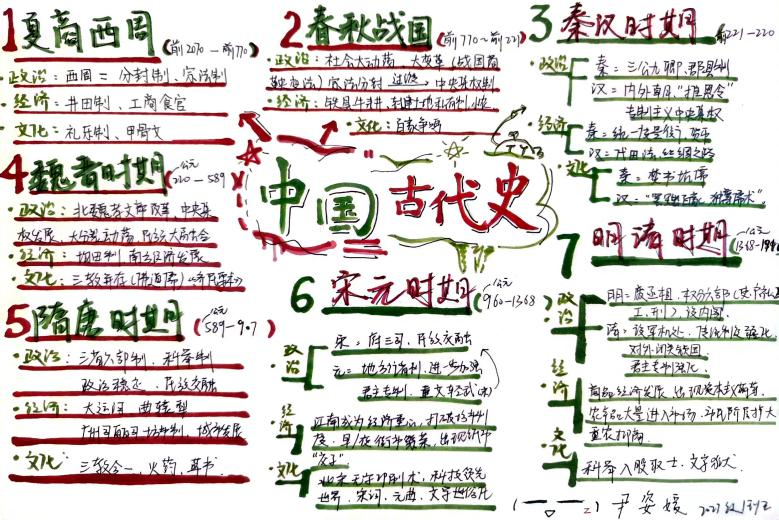 1 夏商西周 (前2070~前770)
·政治：西周＝分封制、宗法制
·经济：井田制、工商食官
·文化：礼乐制、甲骨文
2 春秋战国 (前770~前221)
·政治：社会大动荡、大变革（战国商
鞅变法）宗法分封 过渡→ 中央集权制
·经济：铁具牛耕，封建土地私有制
·文化：百家争鸣
3 秦汉时期 前221-220
·政治
秦：三公九卿、郡县制
汉：内外朝、"推恩令"
专制主义中央集权
·经济
秦：统一度量衡、货币
汉：代田法、丝绸之路
·文化
秦：焚书坑儒
汉：
中国古代史
4 魏晋时期 (公元220-589
·政治：北魏孝文帝改革、中央集
权发展、大分裂大动荡、民族大融合
·经济：均田制 南方经济发展
·文化：三教并存(佛道儒)《齐民要术》
5 隋唐时期 (公元589-907
·政治：三省六部制、科举制
政治稳定、民族交融
·经济：大运河 曲辕犁
坊市制、城市发展
·文化：三教合一、火药、
6 宋元时期 (公元960-1368)
·政治
宋：
元：地方行省制、进一步加强
君主专制、重文轻武(宋)
·经济
江南成为经济重心，打破坊市制
度，出现纸币
"交子"
·文化
北宋 活字印刷术，科技领先
世界，宋词、元曲、文学世俗化
7 明清时期 (公元1368-1
·政治
明：废丞相，权分六部(吏户礼兵
工刑)、设内阁
清：设军机处、
对外闭关锁国
君主专制强化
·经济
商品经济发展，出现资本主义萌芽
农产品大量进入市场，市民阶层扩大
重农抑商
·文化
科举八股取士，文字狱
尹姿媛